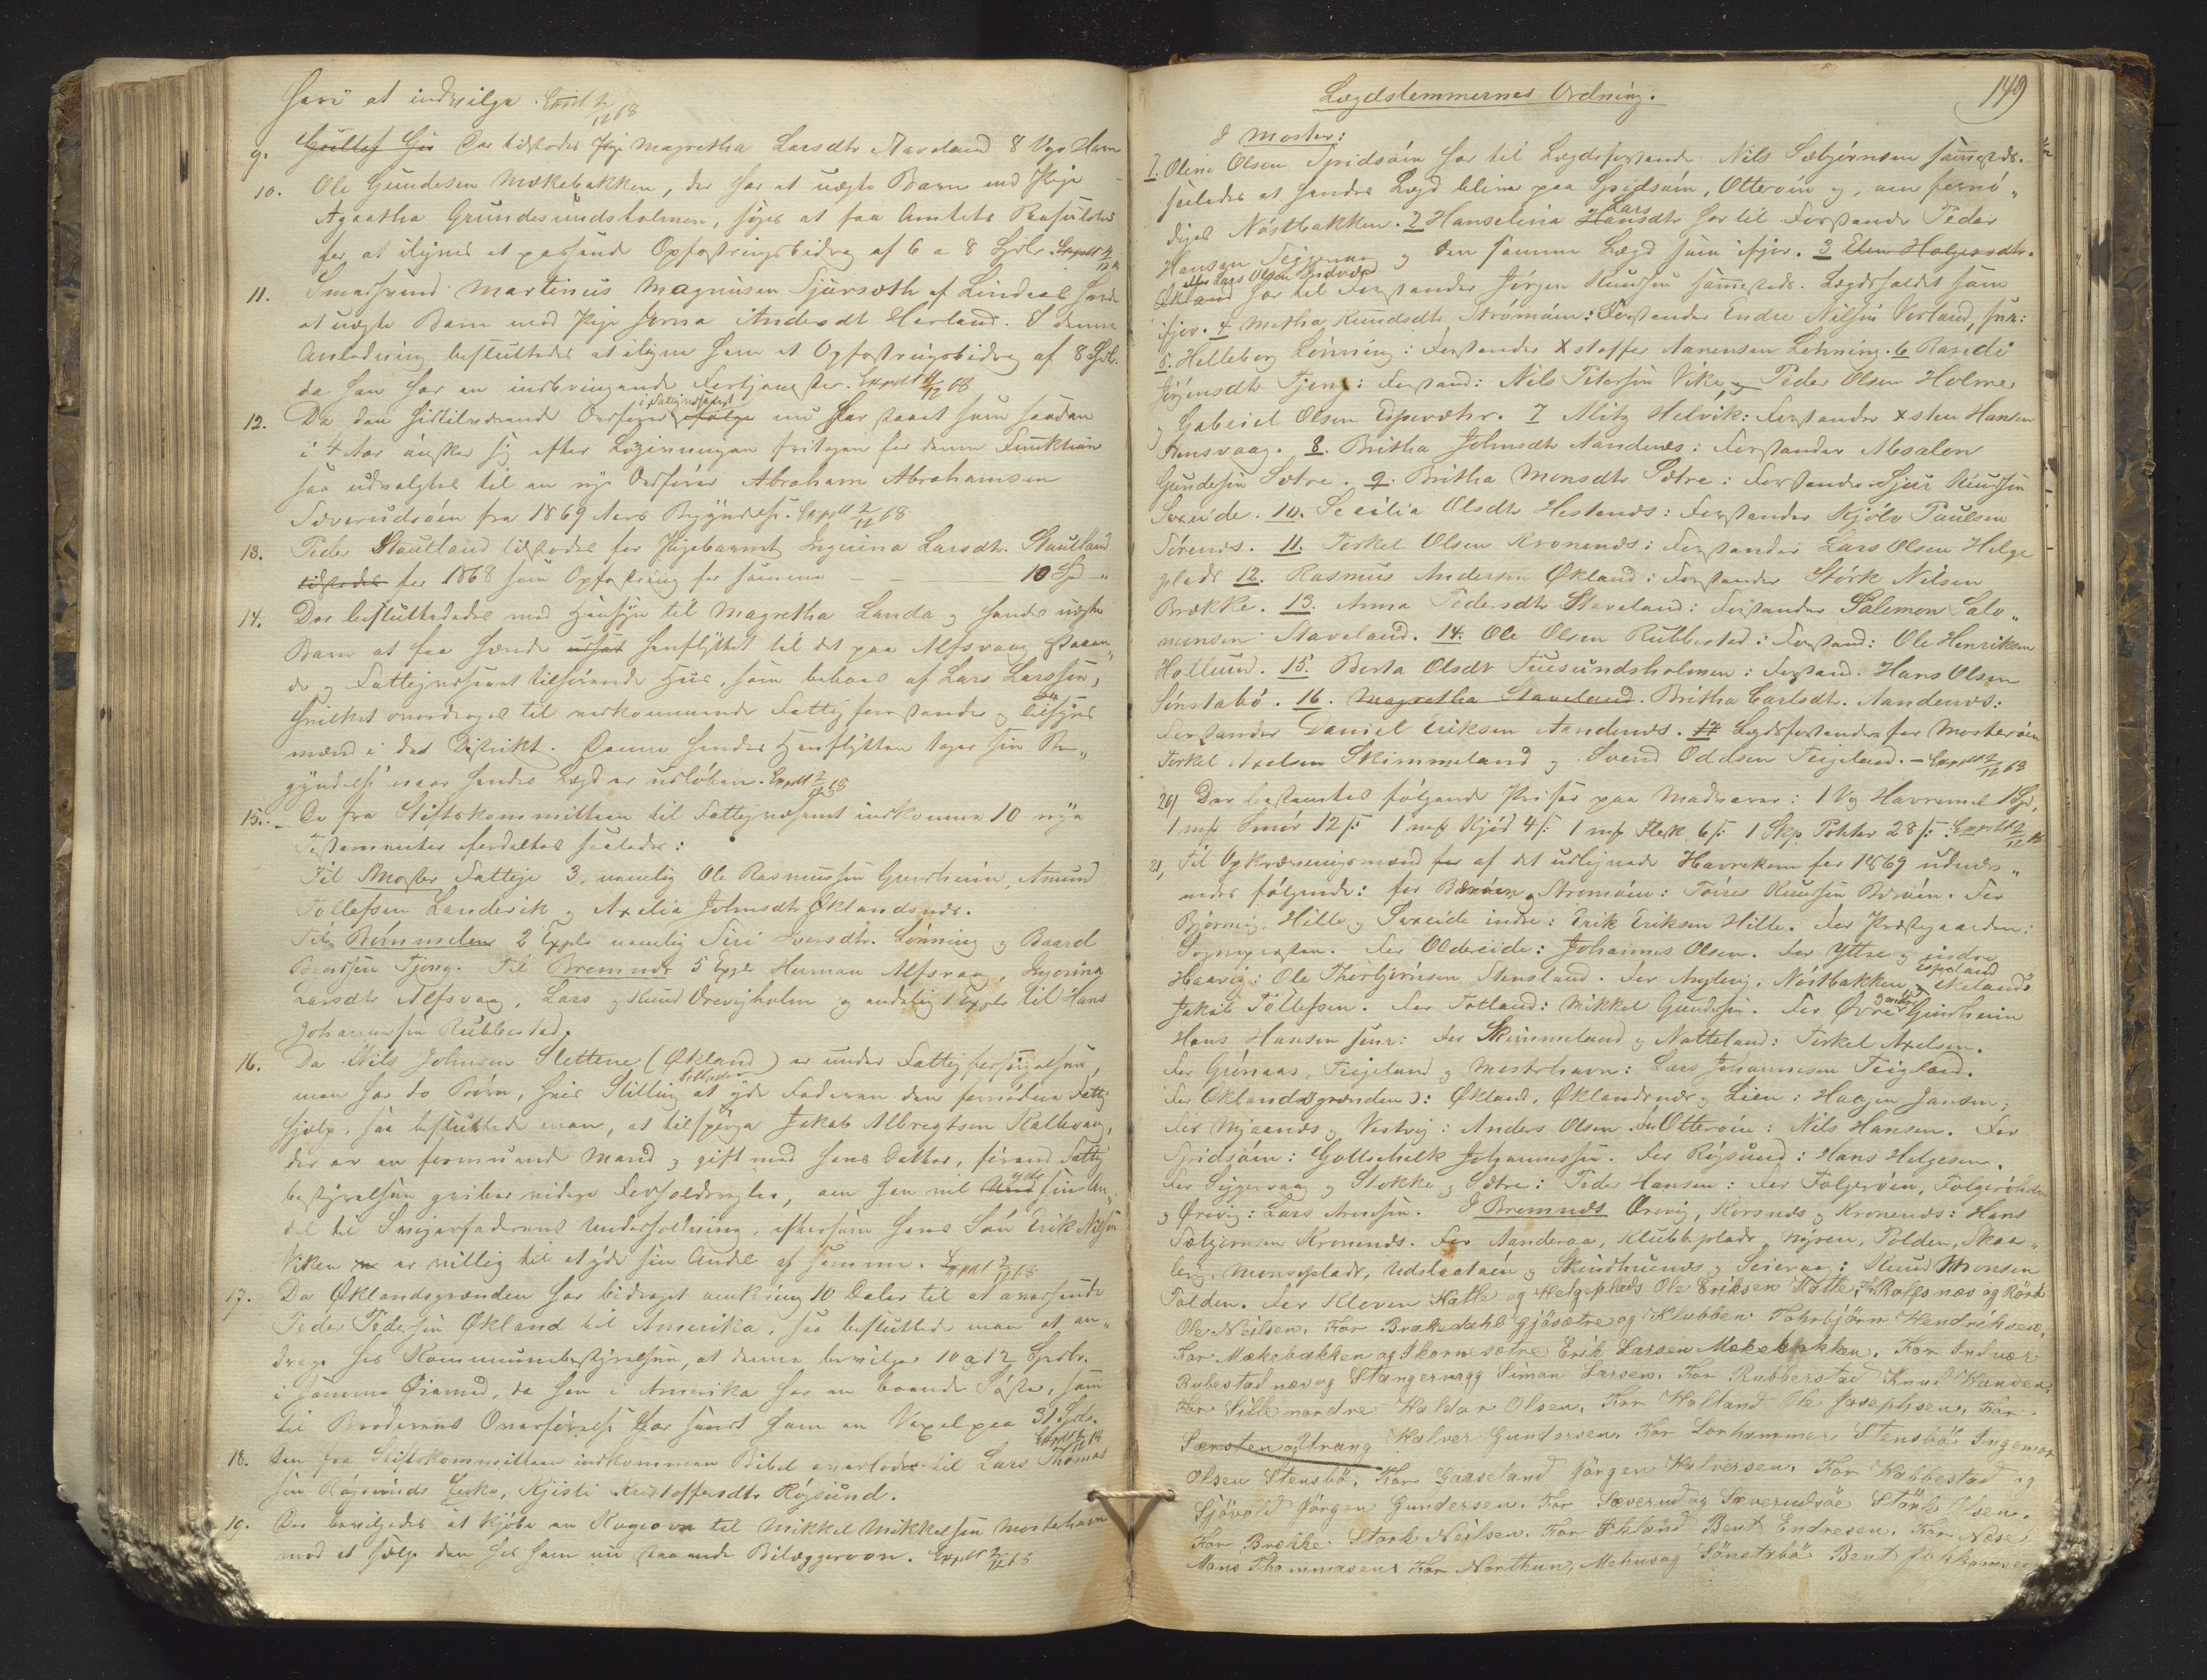 havi at indvilge. Exped 2/12 68
9. Gullef Gu Der tilstodes Pige Magretha Larsdtr Aaveland 8 Vog Havre
10. Ole Gundesen Mækebakken, der har et uægte Barn med Pige
Agaatha Grundesundsholmen, søges at faa Amtets Resolution
for, at ilignes et passende Opfostringsbidrag af 6 a 8 Spdlr. Expdt 2/12 68
11. Smaahund Martinus Magnusen Sjursæth af Lindaas havde
et uægte Barn med Pige Jorna Andersdt Herland. I denne
Anledning besluttedes at iligne ham et Opfostringsbidrag af 8 Spdl.
da han har en indbringende Fortjeneste. Expdt 2/12 68
12. Da den hidtilværende Ordfører i Fattigvæsenet ifølge nu har staaet som saadan
i 4 Aar ønsker sig efter Lovgivningen fritagen for denne Funktion
saa udvalgtes til en ny Ordfører Abraham Abrahamsen
Sæverudsøen fra 1869 Aars Begyndelse. Expdt 2/12 68
13. Peder Stautland tilstodes for Pigebarnet Ingerina Larsdtr. Stautland
tilstodes for 1868 som Opfostring for samme — — 10 Spd "
14. Der besluttedes med Hensyn til Magretha Landa og hendes uægte
Barn at faa hende udsat henflyttet til det paa Alfsvaag staaen„
de og Fattigvæsenet tilhørende Hus, som beboes af Lars Larssen,
hvilket overdrages til vedkommende Fattigforstander og Tilsyns
mænd i det Distrikt. Denne hendes Henflytten tager sin Be„
gyndelse naar hendes Lægd er udløben. Expdt 2/12 68
15. De fra Stiftskommitteen til Fattigvæsenet indkomne 10 nye
Testamenter fordeltes saaledes:
Til Moster Fattige 3, nemlig Ole Rasmussen Gundheim, Amund
Tollefsen Landevik og Axelia Johnsdtr Øklandsnæs.
Til Bømmelen 2 Expl. nemlig Siri Iversdtr. Lønning og Baard
Baardsen Tjong. Til Bremnæs 5 Expl. Herman Alfsvaag, Ingerina
Larsdtr Alfsvaag, Lars og Knud Urevigholm og endelig 1 Expl. til Hans
Johannessen Rubbestad.
16. Da Nils Johnsen Slettene (Økland) er under Fattigforsørgelsen,
men har to Børn, hvis Stilling tillader at yde Faderen den fornødne Fattig
hjælp, saa besluttede man, at tilspørge Jakob Albregtsen Kallevaag,
der er en formuende Mand og gift med hans Datter, førend Fattig
bestyrelsen griber videre Forholdsregler, om han vil And yde sin An„
del til Svigerfaderens Underholdning, eftersom hans Søn Erik Nilsen
Viken er er villig til at yde sin Andel af samme. Expdt 2/12 68
17. Da Øklandsgrænden har bidraget omkring 10 Daler til at oversende
Peder Pedersen Økland til Amerika, saa besluttede man at an„
drage hos Kommunebestyrelsen, at denne bevilger 10 a 12 Spdlr.
i samme Øiemed, da han i Amerika har en boende Søster, som
til Broderens Overførelse har sendt ham en Vexel paa 31 Spdlr.
Expdt 2/12 68
18. Den fra Stiftskommitteen indkomne Bibel overlodes til Lars Thomas
sen Røgsunds Enke, Kjisti Kristoffersdtr Røgsund.
19. Der bevilgedes at kjøbe en Kogeovn til Mikkel Mikkelsen Mosterhavn
mod at sælge den hos ham nu staaende Bilæggerovn. Expdt 2/12 68
149
Lægdslemmernes Ordning.
I Moster:
1. Oline Olsen Spidsøen har til Lægdsforstander Nils Sæbjørnsen sammesteds.
saaledes at hendes Lægd bliver paa Spidsøen, Otterøen og, om fornø„
diges Nøstbakken. 2 Hanselina Hansdtr Lars har til Forstander Peder
Hansen Siggervaag og den samme Lægd som ifjor. 3 Elen Holgersdtr.
Økland eller Lars Olsen Indvær har til Forstander Jørgen Knudsen sammesteds. Lægdsholdet som
ifjor. 4 Metha Knudsdtr Strømøen: Forstander Endre Nilsen Vorland, snr:
5. Helleborg Lønning: Forstander Xstoffer Aanensen Lønning. 6 Randi
Jørgensdtr Tjong: Forstand: Nils Petersen Vike, og Peder Olsen Holme
og Gabriel Olsen Espevæhr. 7 Alitz Helvik: Forstander Xsten Hansen
Stensvaag. 8. Britha Johnsdtr Aandenæs: Forstander Absalon
Gundesen Sætre. 9. Britha Monsdtr Sætre: Forstander Sjur Knudsen
Sexeide. 10. Secilia Olsdtr Hestenæs: Forstander Kjøln Paulsen
Sørenæs. 11. Torkel Olsen Kronenæs: Forstander Lars Olsen Helge
plads 12. Rasmus Andersen Økland: Forstander Størk Nilsen
Brække. 13. Anna Pedersdtr Staveland: Forstander Salemon Salo„
monsen Staveland. 14. Ole Olsen Rubbested: Forstand: Ole Henriksen
Hollund. 15. Berta Olsdtr Tuesundsholmen: Forstand. Hans Olsen
Sønstabø. 16. Magretha Staveland. Britha Carlsdtr. Aandenæs:
Forstander Daniel Eriksen Aandenæs. 17 Lægdsforstander for Mosterøen
Torkel Axelsen Skimmeland og Svend Oddsen Teigeland. — Expdt 2/12 68
20) Der bestemtes følgende Priser paa Madvarer: 1 Vog Havremel 1 Spd,
1 mk Smør 12 ſ: 1 mk Kjød 4 ſ: 1 mk Flesk 6 ſ: 1 Skp. Poteter 28 ſ: Expdt 2/12 68
21, Til Opkrævningsmænd for af det udlignede Havrekorn for 1869 udnæv„
nedes følgende: for Børøen og Strømøen: Torres Knudsen Børøen. For
Bjørnvig, Hille og Sexeide indre: Erik Eriksen Hille. For Prestegaarden:
Sognepresten. For Oldereide: Johannes Olsen. For Yttre og indre
Haavig: Ole Thorbjørnsen Stensland. For Anglevig, Nøstbakken, Espeland Ekeland:
Jakob Tollefsen. For Totland: Mikkel Gundesen. For Øvre og nedre Gundheim
Hans Hansen snr: For Skimmeland og Natteland: Torkel Axelsen.
For Grønaas, Teigeland og Mosterhavn: Lars Johannesen Teigland.
For Øklandsgrænden: Økland, Øklandsnæs og Lien: Haagen Jansen,
For Mjaanæs og Vestvig: Anders Olsen. For Otterøen: Nils Hansen. For
Spidsøen: Gottschalk Johannessen. For Røgsund: Hans Helgesen.
For Siggervaag og Stokke og Sætre: Peder Hansen: For Folgerøen, Folgerøholm
og Ørevig: Lars Arnesen. I Bremnæs Urevig, Korsnæs og Kronenæs: Hans
Sæbjørnsen Kronenæs. For Aanderaa, Klubbeplads, Myren, Folden, Skaa„
levig, Monseplads, Udslaatøen og Skindhuenæs og Seievaag: Knud Monsen
Folden. For Kleven Katle og Helgeplads Ole Eriksen Katle, For Rolfsnæs og Rørd
Ole Neilsen. For Brakedahl Gjøsætre og Klubben Tohrbjörn Hendriksen,
For Mækebakken og Skornesætre Erik Larsen Mækebakken. For Indvær
Rubestadnæs og Stangervaag Simon Larsen. For Rubberstad Knud Handen,
For Sille nordre Haldor Olsen, For Holland Ole Josephsen, For
Særsten og Urang Halver Gundersen. For Lorhammer Stensbö Ingemar
Olsen Stensbö, For Gaaseland Jørgen Halversen. For Habbestad og
Sjövold Jørgen Gundersen. For Sæverud og Sæverudsöe Störk Olsen.
For Brække Stork Neilsen. For Økland Bent Endresen. For Næse
Mons Thommasen, For Northun, Mehus og Sönstabö Bent Johhannsen